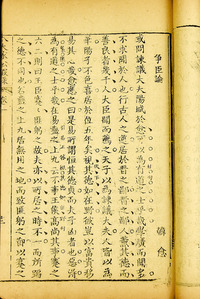 爭臣論
韓愈
或問諫議大夫陽城於愈可以為有道之士乎哉學廣而聞多
不求聞於人也行古人之道居於晉之鄙晉之鄙人薰其德而
善良者幾千人大臣聞而薦之天子以為諫議大夫人皆以為
華陽子不色喜居於位五年矣視其德如在野彼豈以富貴移
易其心哉愈應之曰是易所謂恒其德貞而夫子凶者也惡得
為有道之士乎哉在易蠱之上九云不事王侯高尚其事蹇之
六二則曰王臣蹇蹇匪躬之故夫亦以所居之時不一而所蹈
之德不同也若蠱之上九居無用之地而致匪躬之節以蹇之